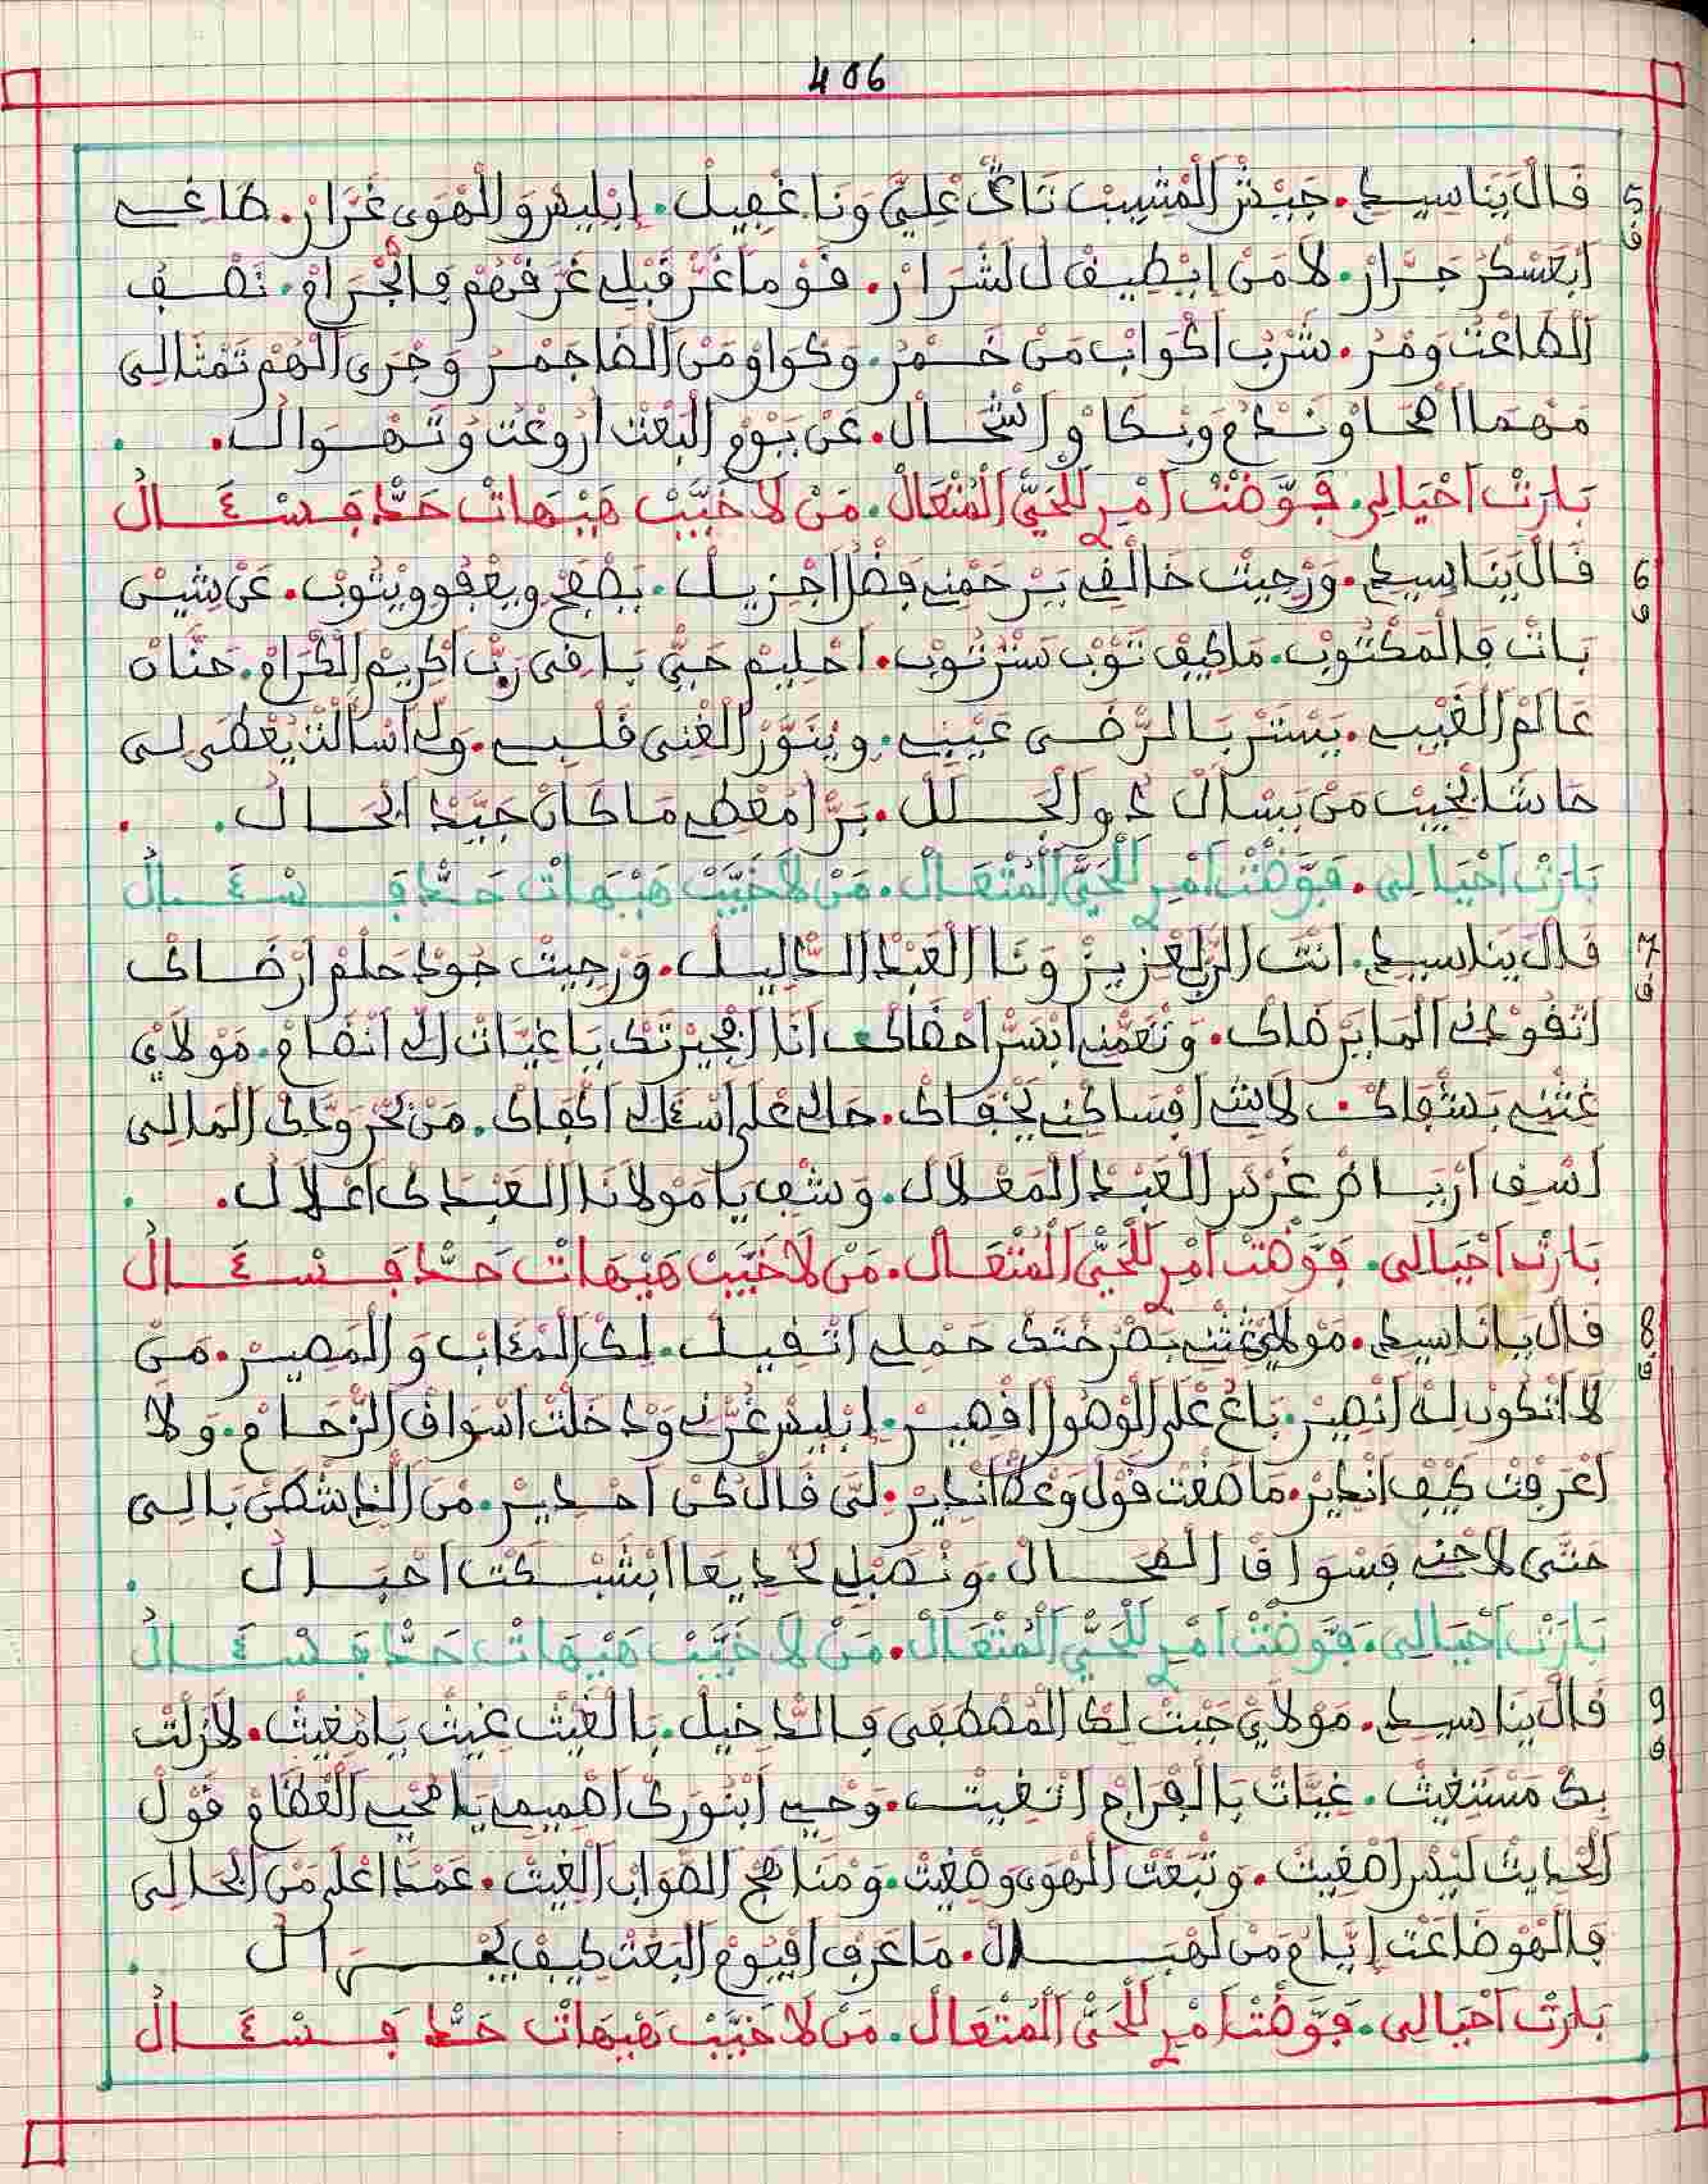 406
5 ف
قَالْ يَنَا سِيدِي. جَيْشْ الْمْشِيبْ تَاكْ عْلِيَّ وَنَا غْفِيلْ. إبْلِيسْ وَالْهْوَى غَرَّارْ. طَاغِي
ابْعَسْكَرْ جَرَّارْ. لاَ مَنْ إيْطِيقْ لَلشَّرَارْ. قَوْم مَا غَرّ قَبْلِي غَرَّقْهُمْ فَالْجْرَامْ.
الطَّاعْتْ وَمْرْ. شَرْبْ اكْوَابْ مَنْ خَمْرْ. وَكْوَاوْ مَنْ الضَّا جَمْرْ وَجْرَى الْهُمْ تَمْثَالِي
مَهْمَا اضْحَاوْ نَدَّمْ وَبْكَاوْ اشْحَالْ. عَنْ يَوْمْ الْبَعْثْ ارْوَعْتُ وَتَهْوَالُ.
بَارْتْ احْيَالِي. فَوَّضْتْ امْرِي لَلْحَيّْ الْمْتْعَالْ. مَنْ لاَ خَيَّبْ هَيْهَاتْ حَدّْ فَسْئَالُ
6 ف
قَالْ يَنَا سِيدِي. وَرْجِيتْ خَالْقِي يَرْحَمْنِي بَفْضْلُ اجْزِيلْ. يَصْفَحْ وِيعْفُو وِيتُوبْ. عَنْ شَيْنْ
بَانْ فَالْمَكْتُوبْ. مَا كِيفْ تَوْبْ سَتْرْ تُوبْ. احْلِيمْ حَيّْ بَاقِي رَبّْ اكْرِيمْ الْكْرَامْ. حَنَّانْ
عَالَمْ الْغَيْبِ. يَسْتَرْ بَالرّْضَى عَيْبِي. وِينَوَّرْ الْغْنِي قَلْبِي. وِلَ اسْأَلْتْ يَعْطَى لِي
حَاشَا يْخِيبْ مَنْ يَسْأَلْ دُو الْجَلَلْ. بَرّْ امْعْطِي مَا كَانْ جَيَّدْ ابْحَالُ.
بَارْتْ احْيَالِي. فَوَّضْتْ امْرِي لَلْحَيّْ الْمْتْعَالْ. مَنْ لاَ خَيَّبْ هَيْهَاتْ حَدّْ فَسْئَالُ
7 ف
قَالْ يَنَا سِيدِي. انْتَ الرَّبّْ لَعْزِيزْ وَنَا الْعَبْدْ الدَّلِيلْ. وَرْجِيتْ جُودْ حَلْمْ ارْضَاكْ
اتْقُودْنِي الْمَا يَرْضَاكْ. وَتْعَمّْنِي ابْسَرّْ احْفَاكْ. أنَا افْجِيرْتَكْ يَا غِيَّاتْ اللِّي انْضَامْ. مَوْلاَيْ
غَتْنِي بَشْفَاكْ. لاَ شِي افْسَاكْنِي يْخْفَاكْ. حَالِي عْلَى اسْئَالِي اكْفَاكْ. مَنْ بْحْرْ وَدّكْ الْمَالِي
اسْقِ ارْيَاضْ غَرْسْ الْعَبْدْ الْمَعْلاَلْ. وَشْفِ يَا مَوْلاَنَا الْعَبْدَكْ اعْلاَلُ.
بَارْتْ احْيَالِي. فَوَّضْتْ امْرِي لَلْحَيّْ الْمْتْعَالْ. مَنْ لاَ خَيَّبْ هَيْهَاتْ حَدّْ فَسْئَالُ
8 ف
قَالْ يَانَا سِيدِي. مَوْلاَيْ غَتْنِي بَصْرَخْتَكْ حَمْلِي اتْقِيلْ. لِكْ الْمْئَابْ وَالْمَصِيرْ. مَنْ
لاَ اتْكُونْ لُهْ انْصِيرْ. بَاعُ عْلَى الْوْصُولْ اقْصِيرْ. إبْلِيسْ غَرّْنِي وَدْخَلْتْ اسْوَاقْ الزّْحَامْ. وَلاَ
اعْرَفْتْ كِيفْ انْدِيرْ. مَا صْغْتْ قَوْل وَعْدْ انْدِيرْ. لَنِّي قَالْ كُنْ احْدِيرْ. مَنْ الَّدِ سْكَنْ بَالِي
حَتَّى لاَحْنِي فَسْوَاقْ الْمْحَالْ. وَنْصَبْ لِي خْدِيعَا ابْشَبْكَتْ احْبَالُ.
بَارْتْ احْيَالِي. فَوَّضْتْ امْرِي لَلْحَيّْ الْمْتْعَالْ. مَنْ لاَ خَيَّبْ هَيْهَاتْ حَدّْ فَسْئَالُ
9 ف
قَالْ يَنَا سِيدِي. مَوْلاَيْ جَبْتْ لَكْ الْمْصْطْفَى فَالدّْخِيلْ. بَالْغَيْتْ غِيتْ يَا مْغِيتْ. لاَزَلْتْ
بِكْ مَسْتَغِيتْ. غِيَّاتْ بَالْفْرَاجْ اتْغِيتْ. وَحْيِي ابْنُورَكْ اصْمِيمِي يَا مْحْيِي الْعْظَامْ قَوْلْ
الْحْدِيتْ لَيْسْ اصْغِيتْ. وَتْبَعْتْ الْهْوَى وَصْغِيتْ. وَمْنَاهَجْ الصّْوَابْ الْغِيتْ. عَمْدَا اعْلَى مَنْ الْجَالِي
فَالْهُو ضَاعَتْ إيَّامْ مَنْ لَهْبَالْ. مَا عْرَفْ افْيُومْ الْبَعْتْ كِيفْ يْجْرَالُ.
بَارْتْ احْيَالِي. فَوَّضْتْ امْرِي لَلْحَيّْ الْمْتْعَالْ. مَنْ لاَ خَيَّبْ هَيْهَاتْ حَدّْ فَسْئَالُ